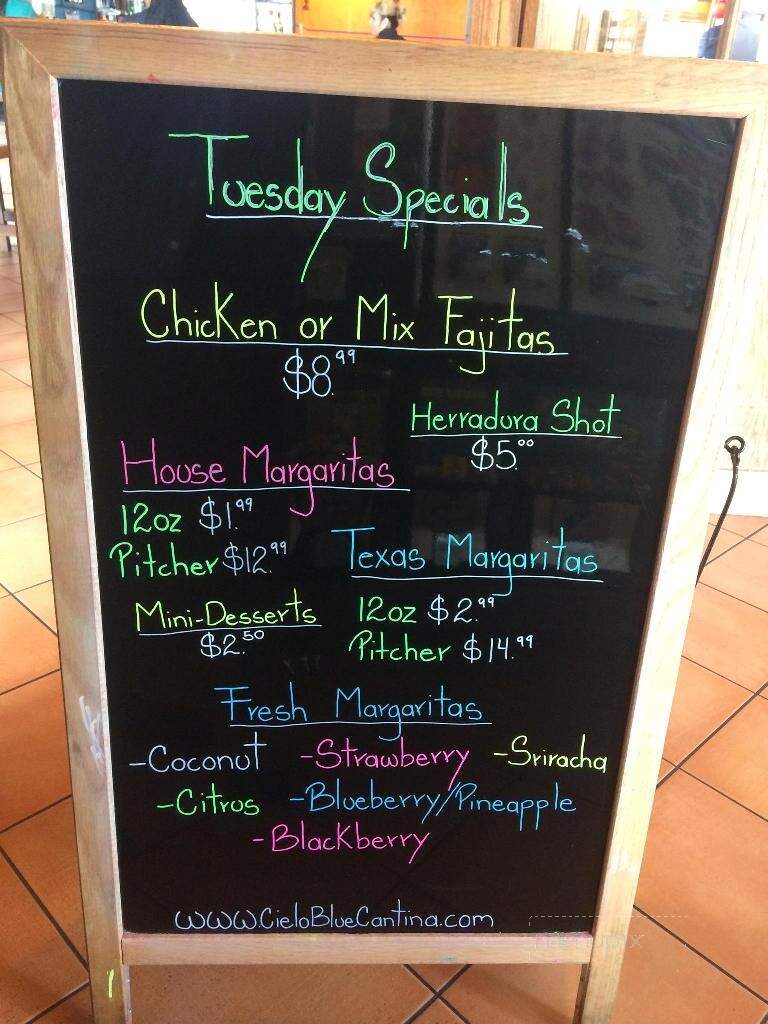 Tuesday Specials
Chicken or Mix Fajitas
$8.99
Herradura Shot
$5.00
House Margaritas
12oz $1.99
Pitcher $12.99
Texas Margaritas
12oz $2.99
Pitcher $14.99
Mini-Desserts
$2.50
Fresh Margaritas
-Coconut -Strawberry -Sriracha
-Citrus -Blueberry/Pineapple
-Blackberry
www.CieloBlueCantina.com